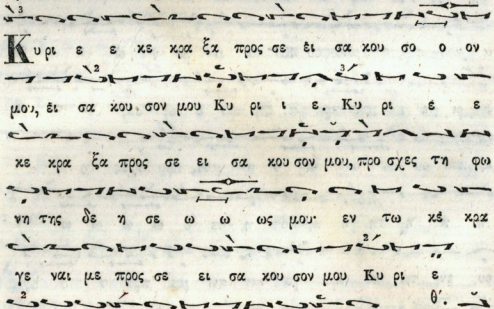 Κυ ρι ε ε κε κρα ξα προς σε ἐι σα κου σο ο ον
μου, ἐι σα κου σον μου Κυ ρι ι ε Κυ ρι έ ε
κε κρα ξα προς σε ει σα κου σον μου, προ σχες τη φω
νη της δε η σε ω ω ως μου· εν τω κε κρα
γε ναι με προς σε ει σα κου σον μου Κυ ρι ε
θ΄.